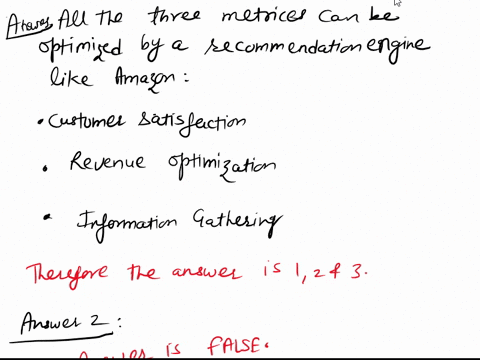 Answer All the three metrices can be
optimized by a recommendation engine
like Amazon:
• Customer satisfaction
• Revenue optimization
• Information Gathering
Therefore the answer is 1, 2 & 3.
Answer 2:
Answer is FALSE.